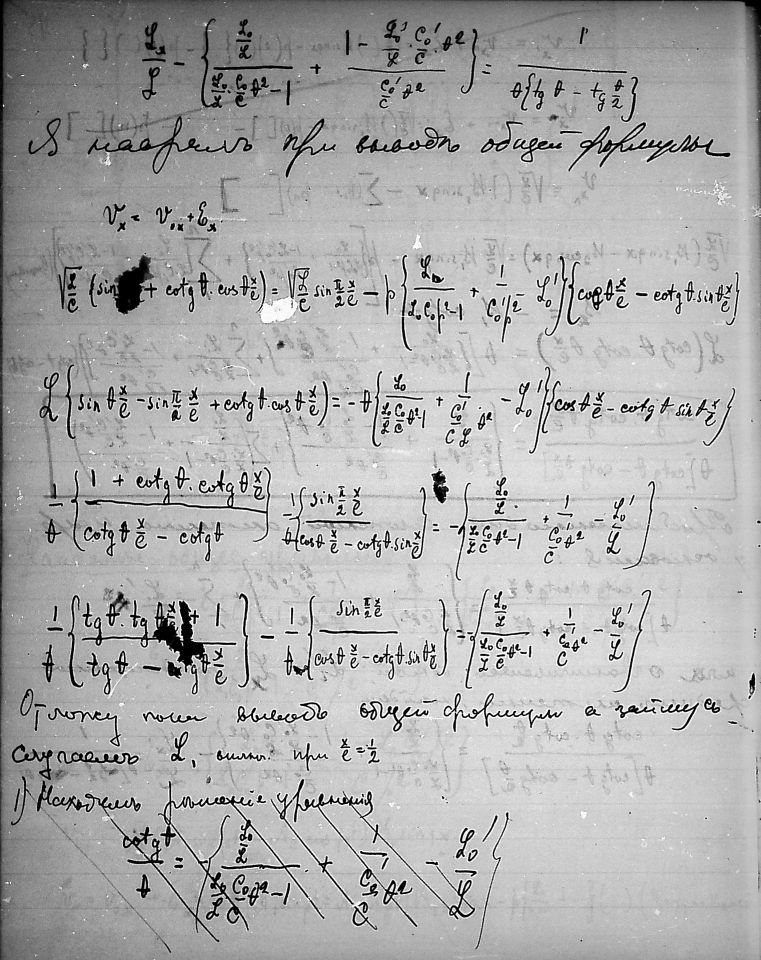 𝓛ₓ/𝓛 − { (𝓛₀/𝓛)/(𝓛₀/𝓛 · C₀/C θ² − 1) + (1 − 𝓛₀'/𝓛 · C₀'/C · θ²)/(C₀'/C θ²) } = 1/(θ{tg θ − tg θ/2})
Я навралъ при выводѣ общей формулы
Vₓ = V₀ₓ + Eₓ
√(𝓛/C) (sin + cotg θ · cos θ x/e) = √(𝓛/C) sin π/2 x/e − p { 𝓛₀/(𝓛₀C₀p² − 1) + 1/(C₀'p²) − 𝓛₀' }{ cos θ x/e − cotg θ sin θ x/e }
𝓛 { sin θ x/e − sin π/2 x/e + cotg θ · cos θ x/e } = −θ { 𝓛₀/(𝓛₀/𝓛 C₀/C θ² − 1) + 1/(C₀'/C 𝓛 θ²) − 𝓛₀' }{ cos θ x/e − cotg θ sin θ x/e }
1/θ { (1 + cotg θ · cotg θ x/e)/(cotg θ x/e − cotg θ) } − 1/θ { (sin π/2 x/e)/(cos θ x/e − cotg θ · sin x/e) } = −{ (𝓛₀/𝓛)/(𝓛₀/𝓛 C₀/C θ² − 1) + 1/(C₀'/C θ²) − 𝓛₀'/𝓛 }
1/θ { (tg θ · tg θ x/e + 1)/(tg θ − tg θ x/e) } − 1/θ { (sin π/2 x/e)/(cos θ x/e − cotg θ · sin θ x/e) } = −{ (𝓛₀/𝓛)/(𝓛₀/𝓛 C₀/C θ² − 1) + 1/(C₀'/C θ²) − 𝓛₀'/𝓛 }
Отложу пока выводъ общей формулы а займусь
случаемъ 𝓛, при x/e = 1/2
1) Находимъ рѣшеніе уравненія
cotg θ/θ = −{ (𝓛₀/𝓛)/(𝓛₀/𝓛 C₀/C θ² − 1) + 1/(C₀'/C θ²) − 𝓛₀'/𝓛 }